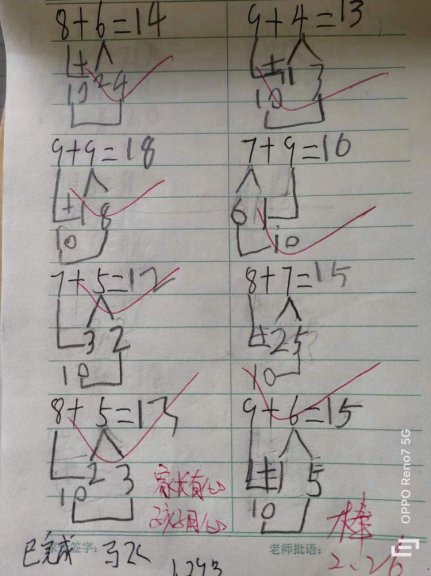 8+6=14 9+4=13
2 4 1 3
10 10
9+9=18 7+9=16
1 8 6 1
10 10
7+5=12 8+7=15
3 2 2 5
10 10
8+5=13 9+6=15
2 3 1 5
10 10
家长
棒
已完成 签字： 老师批语：
2.26.
OPPO Reno7 5G